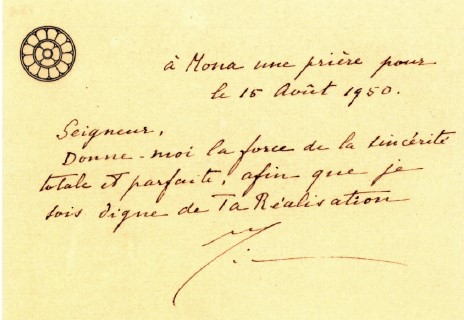 à Mona une prière pour
le 15 Août 1950.
Seigneur,
Donne-moi la force de la sincérité
totale et parfaite, afin que je
sois digne de Ta Réalisation